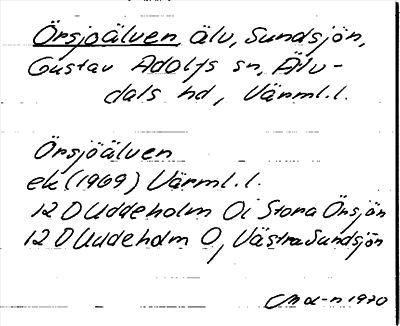 Örsjöälven, älv, Sundsjön,
Gustav Adolfs sn, Älv-
dals hd, Värml.l.
Örsjöälven
ek (1969) Värml.l.
12 D Uddeholm Oi Stora Örsjön
12 D Uddeholm O, Västra Sundsjön
1970